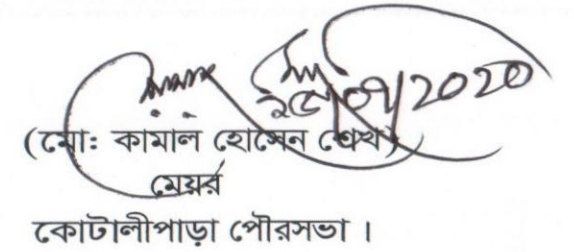 ২৫/০৭/2020
(মো: কামাল হোসেন শেখ)
মেয়র্র
কোটালীপাড়া পৌরসভা ।